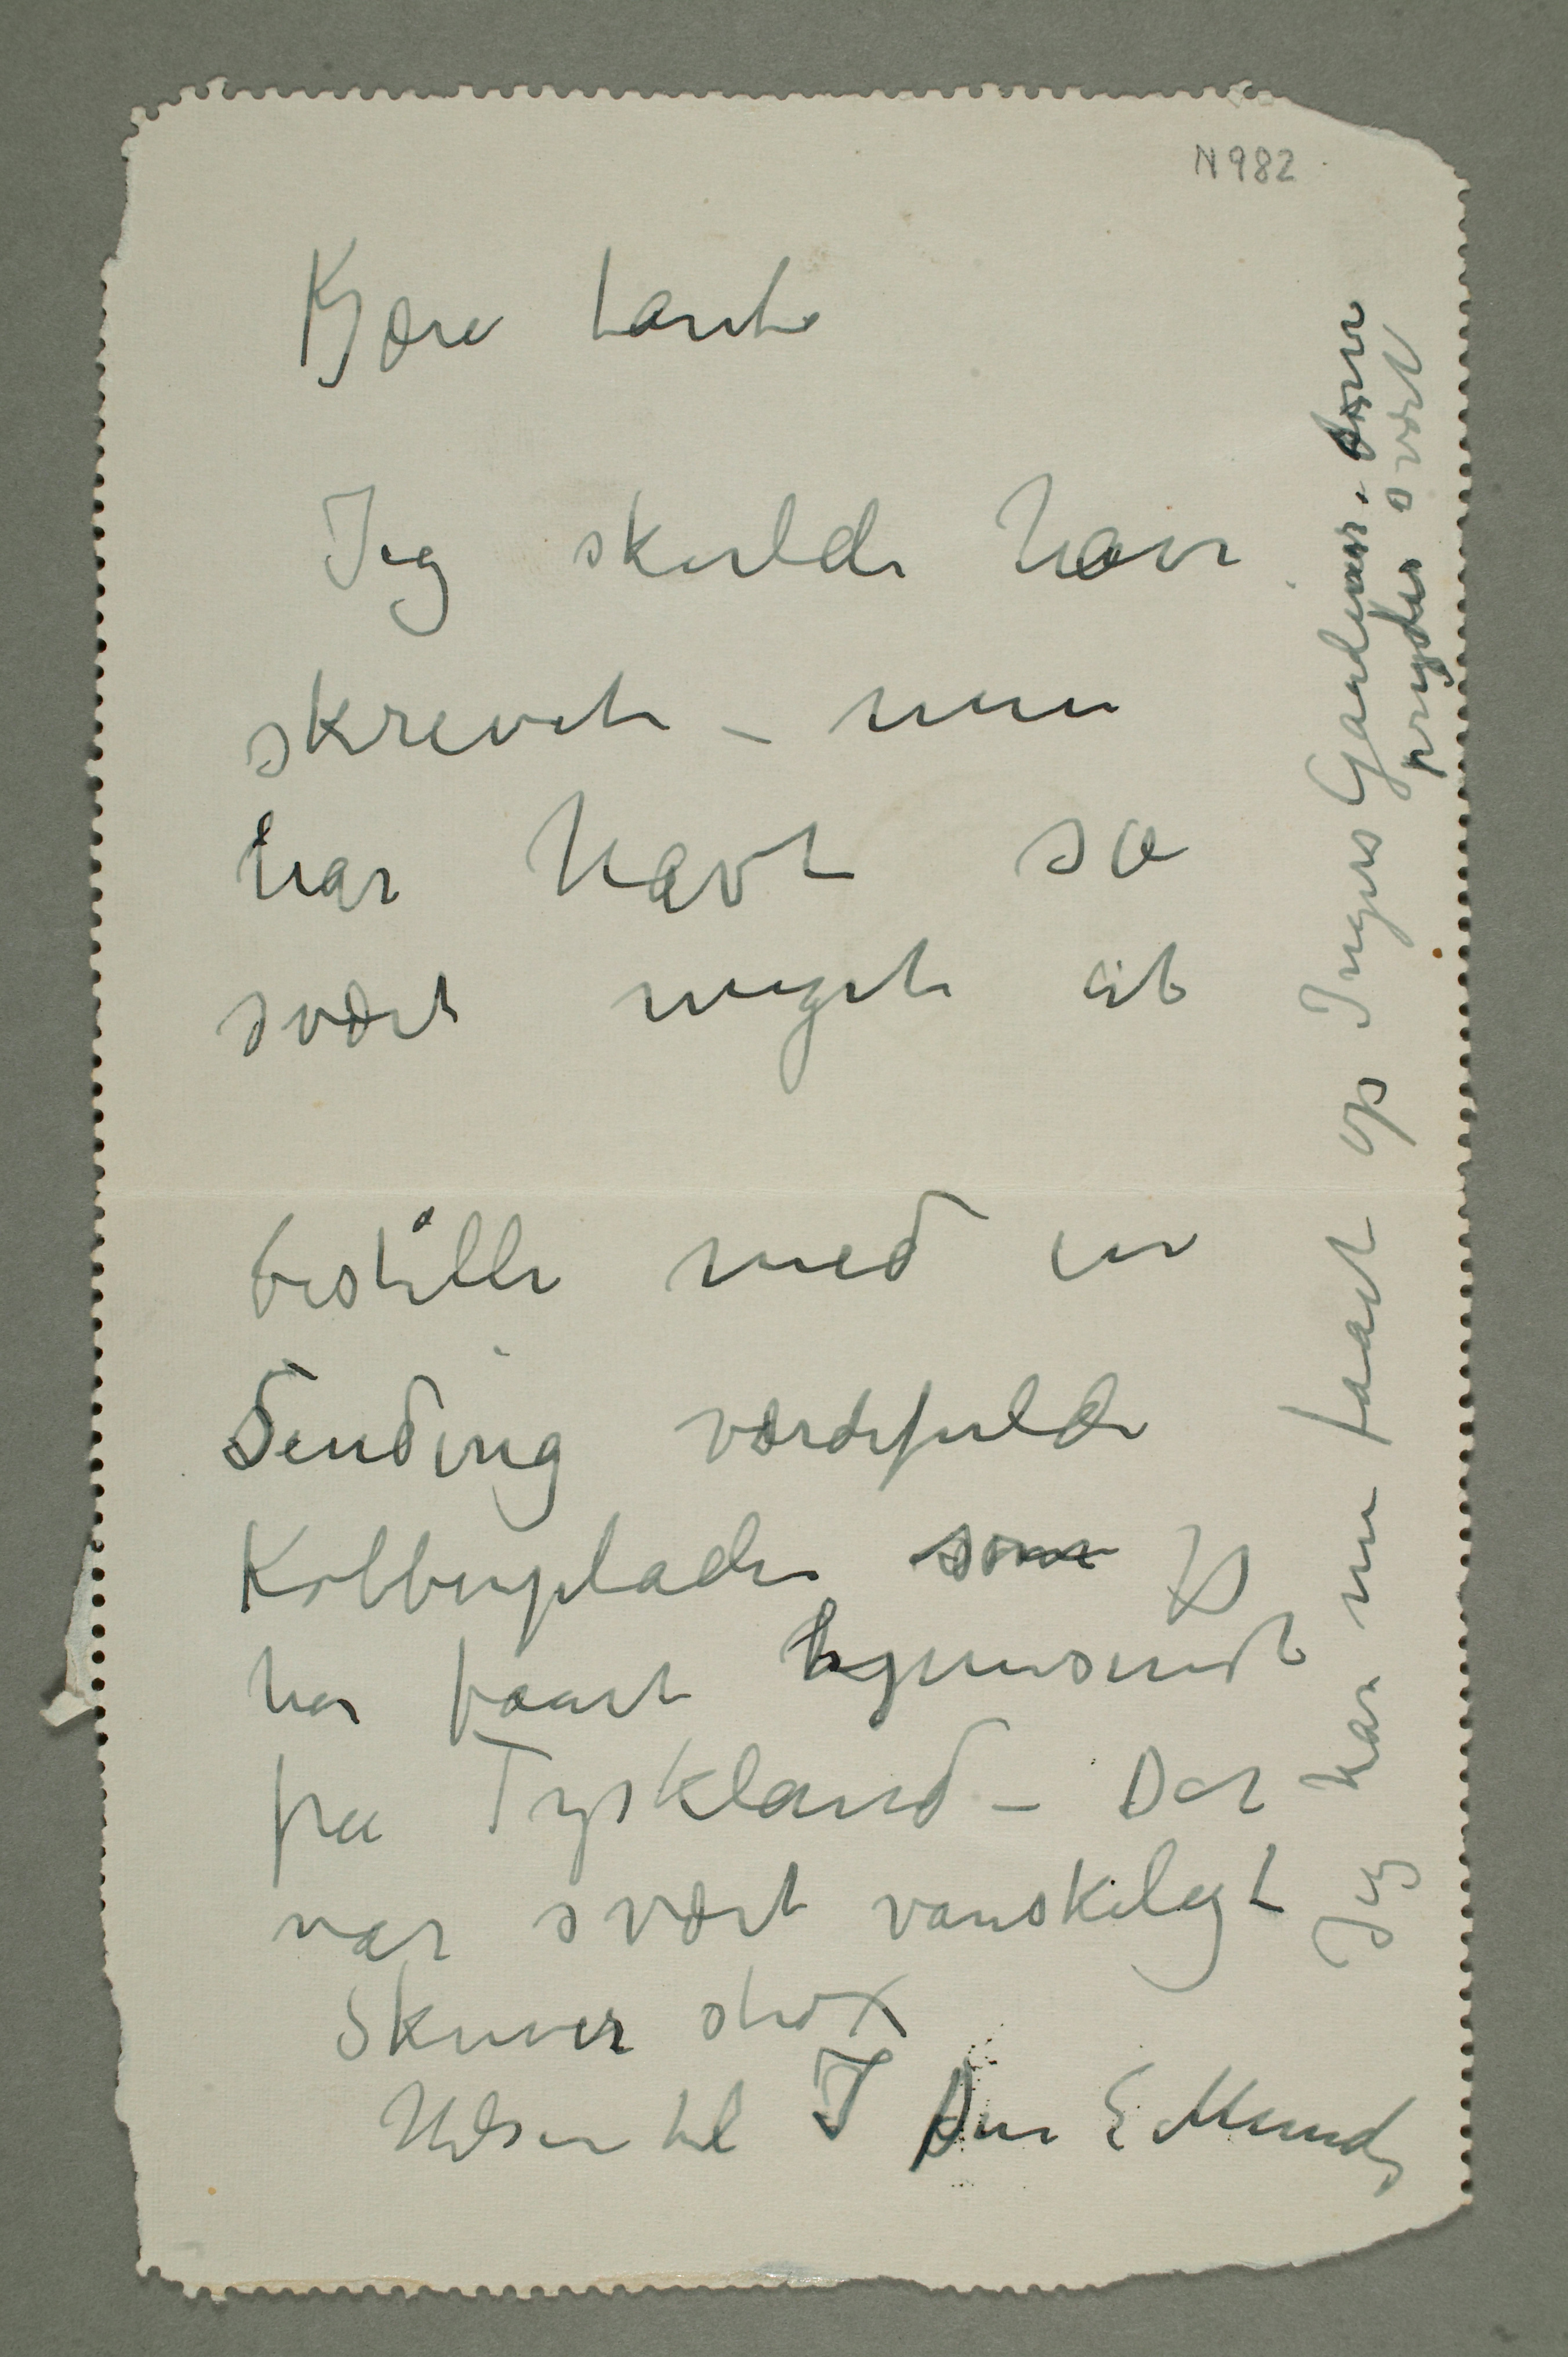 N 982
Kjære tante
Jeg skulde have
skrevet – men
har havt så
svært meget at
bestille med en
Sending værdifulde
Kobberplader som jeg
har faaet hjemsendt
fra Tyskland – Det
var svært vanskeligt
Skriver strax
Hilsen til I Din E Munch
Jeg har nu faaet op Ingers Gardiner. De
pryder svært